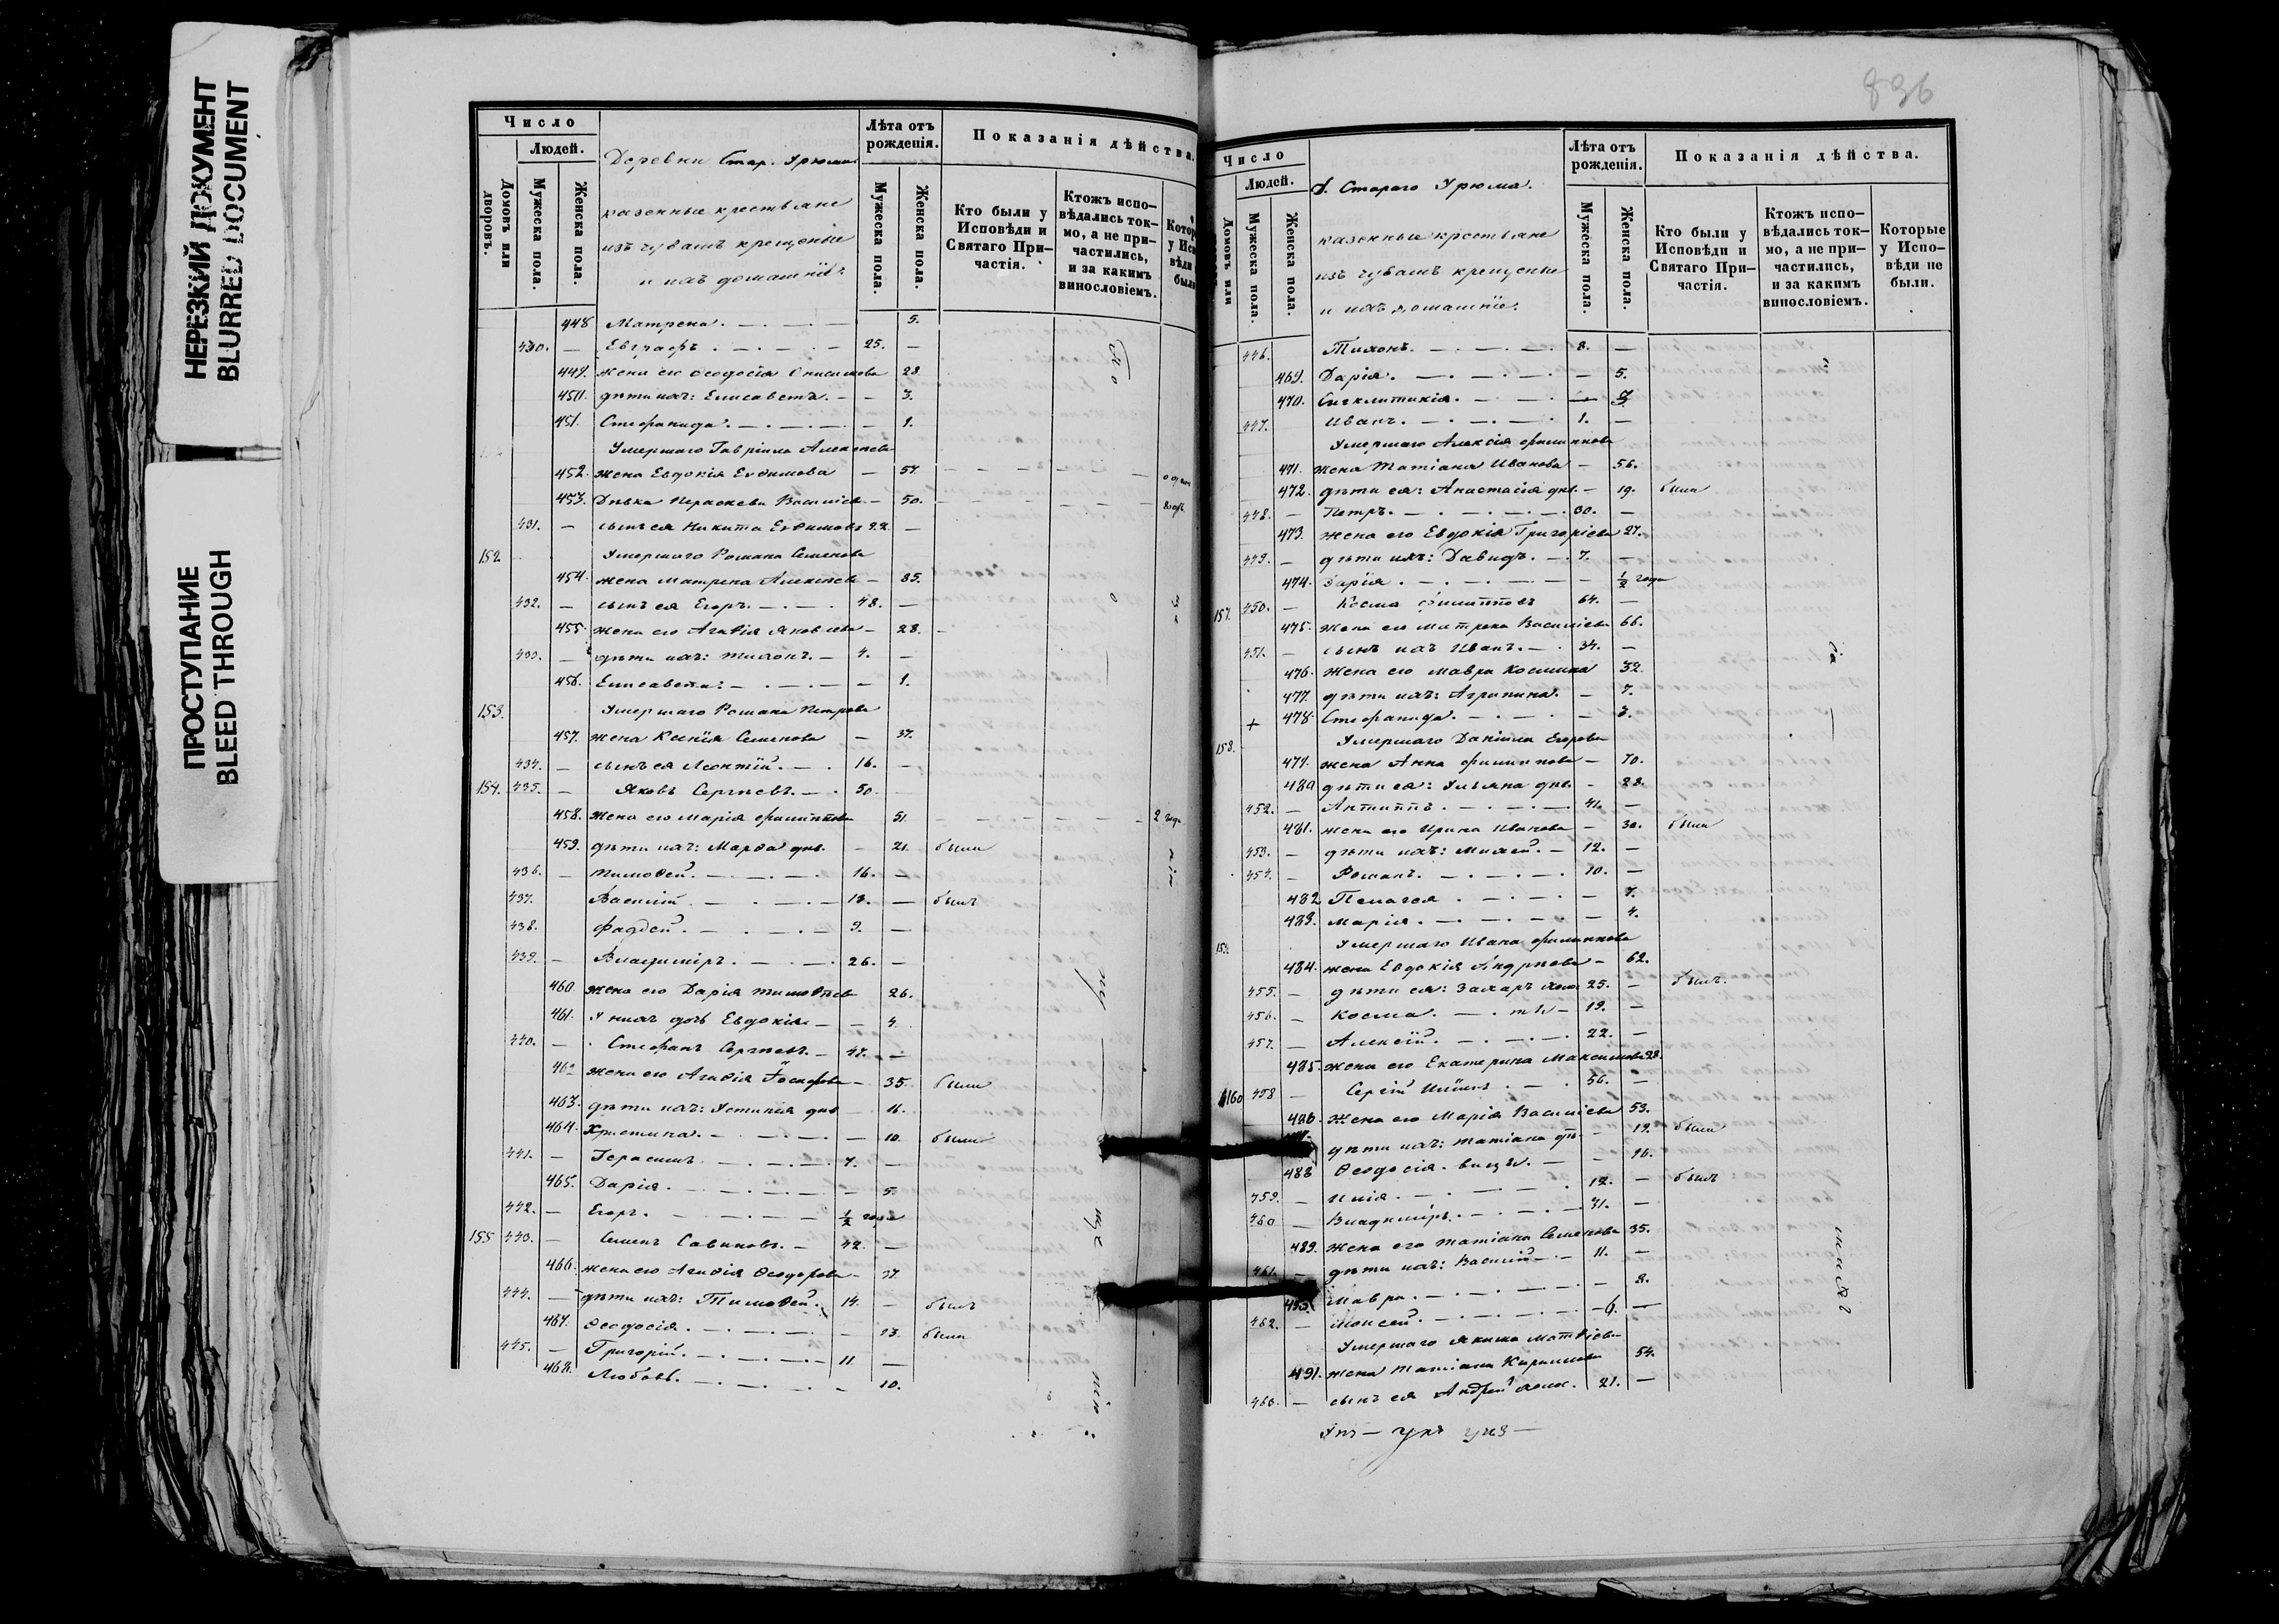 НЕРЕЗКИЙ ДОКУМЕНТ
BLURRED DOCUMENT
ПРОСТУПАНИЕ
BLEED THROUGH
Число
Людей.
Домовъ или дворовъ.
Мужеска пола.
Женска пола.
Деревни Стар. Урюма
казенные крестьяне
изъ чувашъ крещеные
и ихъ домашніе:
Лѣта отъ рожденія.
Мужеска пола.
Женска пола.
Показанія дѣйства.
Кто были у Исповѣди и Святаго При-частія.
Ктожъ испо-вѣдались ток-мо, а не при-частились, и за какимъ винословіемъ.
448 Матрена. 5.
430. — Евграфъ 25. —
449. жена его Ѳеодосія Онисимова 28
450. дѣти ихъ: Елисаветъ. — 3.
451. Стефанида. — 1.
Умершаго Гавріила Алексѣева
452. жена Евдокія Евѳимова — 57.
453. Дѣвка Параскева Василіева — 50.
431. — сынъ ея Никита Евѳимовъ 22. —
152. Умершаго Романа Семенова
454. жена Матрена Алексѣева — 85.
432. — сынъ ея Егоръ. 48. —
455. жена его Агаѳія Яковлева — 28.
433. — дѣти ихъ: Тихонъ. 4. —
456. Елисавета: — 1.
153. Умершаго Романа Петрова
457. жена Ксенія Семенова — 37.
434. — сынъ ея Леонтій. 16. —
154. 435. — Яковъ Сергѣевъ. 50.
458. жена его Марія Филиппова 51. 2 года
459. дѣти ихъ: Марѳа дѣв. — 21. была
436. — Тимоѳей. 16. —
437. Василій 13. — былъ
438. Фаддей. 9. —
439. — Владиміръ. 26. —
460 жена его Дарія Тимоѳѣева 26.
461. У нихъ дочь Евдокія — 4.
440. — Стефанъ Сергѣевъ. 47. —
462 жена его Агаѳія Іосифова — 35. была
463. дѣти ихъ: Устинія дѣв 16.
464. Христина. — 10. была
441. — Герасимъ 7. —
465. Дарія. — 5.
442. — Егоръ. ½ года
155 443. — Семенъ Савиновъ. 42. —
466. жена его Агаѳія Ѳеодорова — 37.
444. — дѣти ихъ: Тимоѳей. 14. — былъ
467. Ѳеодосія. — 13. была
445. — Григорій. 11. —
468. Любовь. — 10.
836
Число
Людей.
Домовъ или
Мужеска пола.
Женска пола.
Д. Стараго Урюма.
казенные крестьяне
изъ чувашъ крещеные
и ихъ домашніе.
Лѣта отъ рожденія.
Мужеска пола.
Женска пола.
Показанія дѣйства.
Кто были у Исповѣди и Святаго При-частія.
Ктожъ испо-вѣдались ток-мо, а не при-частились, и за какимъ винословіемъ.
Которые у Испо-вѣди не были.
446. Тихонъ. 8. —
469. Дарія. — 5.
470. Сигклитикія.
447. Иванъ. 1. —
Умершаго Алексія Филиппова
471. жена Татіана Иванова — 56.
472. дѣти ея: Анастасія дѣв. — 19. была
448. — Петръ. 30. —
473. жена его Евдокія Григоріева 27.
449. — дѣти ихъ: Давидъ. 7. —
474. Дарія. — ½ года
157. 450. — Косма Филипповъ 64. —
475. жена его Матрена Василіева 66.
451. — сынъ ихъ Иванъ. 34. —
476. жена его Мавра Космина 32.
477. дѣти ихъ: Агрипина. — 7.
+ 478. Стефанида. — 3.
158. Умершаго Даніила Егорова
479. жена Анна Филиппова — 70.
480 дѣти ея: Ульяна дѣв. — 28.
452. — Антиппъ. 41. —
481. жена его Ирина Иванова — 30. была
453. — дѣти ихъ: Михей. 12. —
454. — Романъ. 10. —
482 Пелагея — 7.
483. Марія. — 4.
159. Умершаго Ивана Филиппова
484. жена Евдокія Андрѣева — 62.
455. — дѣти ея: Захаръ холос 25. — былъ.
456. — Косма. 19. —
457. — Алексій. 22. —
485. жена его Екатерина Максимова 28.
160 458 — Сергій Ильинъ 56. —
486. жена его Марія Василіева 53.
дѣти ихъ: Татіана дѣв. — 19. была
488 Ѳеодосія. — 16.
459. — Илія. 12. — былъ
460 — Владиміръ. 31. —
489. жена его Татіана Семенова 35.
461. — дѣти ихъ: Василій 11. —
Мавра. — 8.
462. — Моисей. 6. —
Умершаго Якима Матвіева
491. жена Татіана Кириллова 54.
— сынъ ея Андрей холос. 21. —